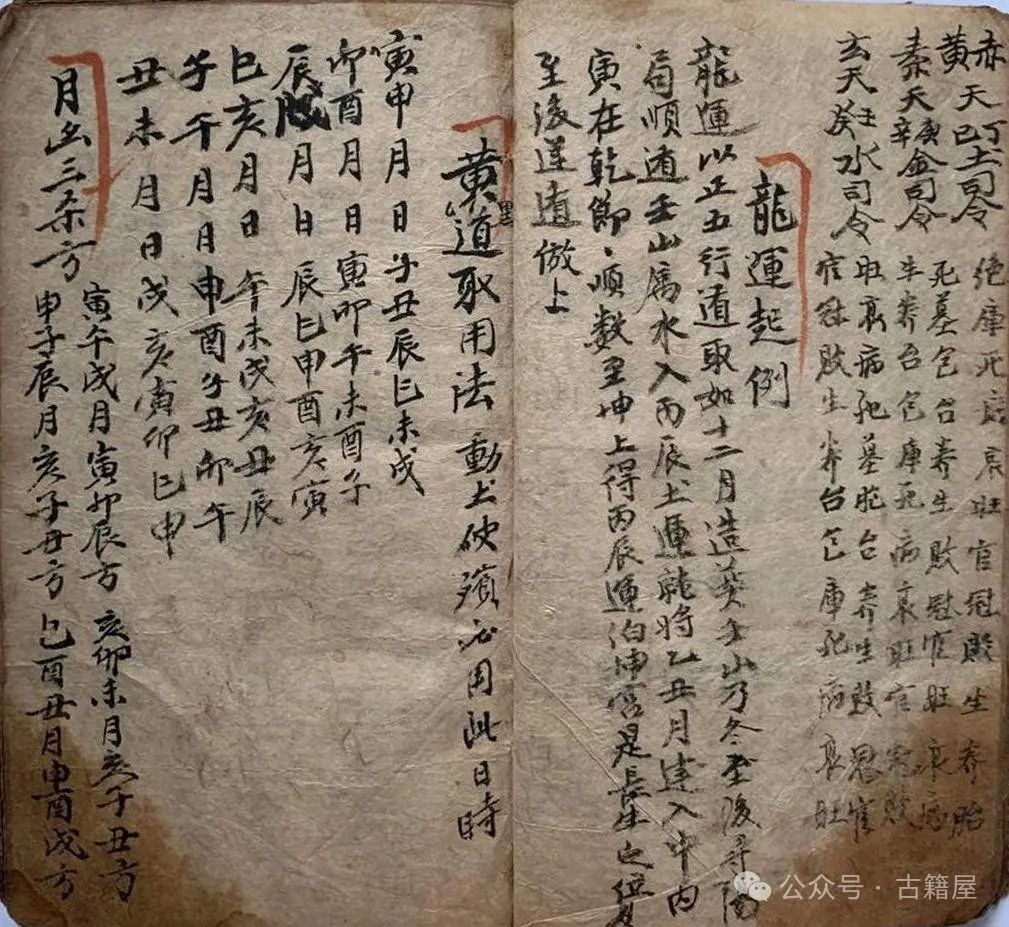 赤天丁土司令 绝库死病衰旺官冠败生养胎
黄天己土司令 死墓包台养生败冠官旺衰病
素天庚辛金司令 生养台包库死病衰旺官冠败
玄天壬癸水司令 旺衰病死墓胞台养生败冠官
官冠败生养台包库死病衰旺
龍運起例
龍運以正五行遁取如十二月造葬壬山乃冬至後寻陽
局順遁壬山属水入丙辰土運就将乙丑月建入中内
寅在乾節、順数至坤上得丙辰運泊坤宫是長生之位
至後逆遁倣上
黄道取用法 動土伏殯必用此日時
黑
寅申月日子丑辰巳未戌
卯酉月日寅卯午未酉子
辰戌月日辰巳申酉亥寅
巳亥月日午未戌亥丑辰
子午月月申酉子丑卯午
丑未月日戌亥寅卯巳申
月出三杀方 寅午戌月寅卯辰方 亥卯未月亥子丑方
申子辰月亥子丑方 巳酉丑月申酉戌方
公众号·古籍屋